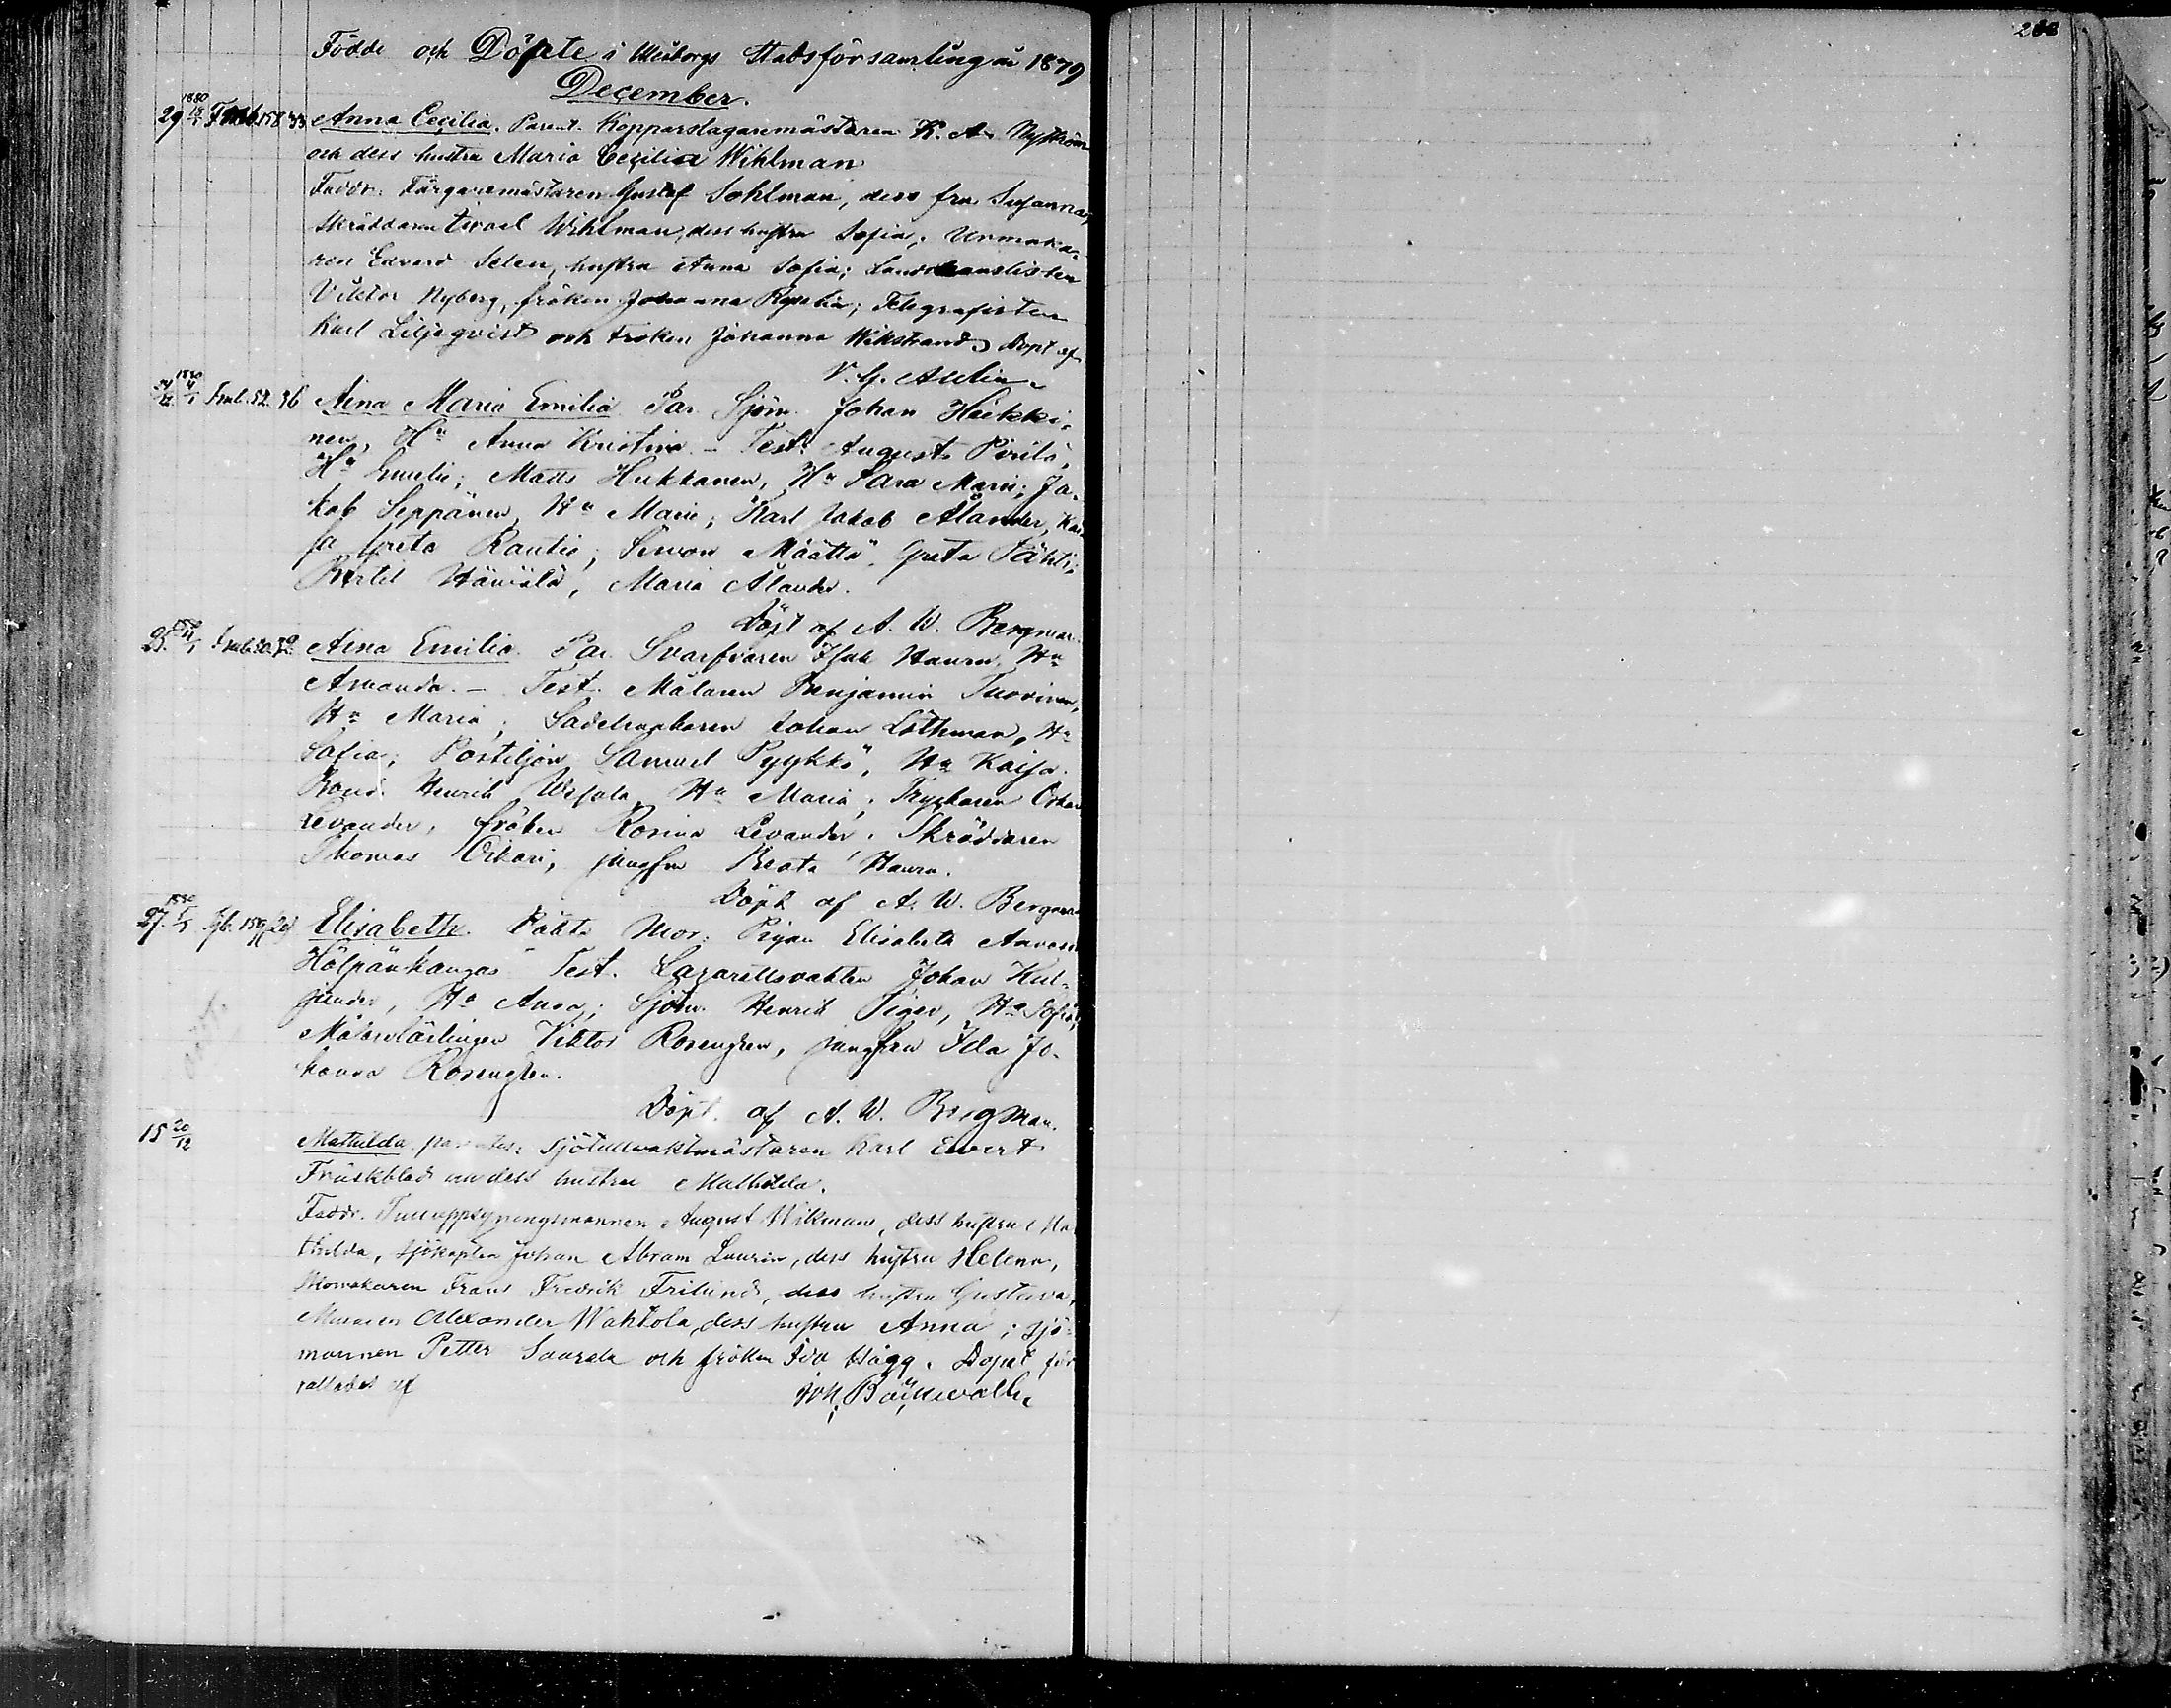 Födde och Döpte i Uleåborgs Stadsförsamling år 1879
December.
29 1880 18/1 Fmb. 158 Anna Cecilia. Parent. Kopparslagaremästaren K. A. Nyström
och dess hustru Maria Cecilia Wihlman
Faddr. Färgaremästaren Gustaf Sohlman, dess fru Susanna,
Skräddaren Israel Wihlman, dess hustru Sofia; Urmaka-
ren Edvard Selen, hustru Anna Sofia; Landskanslisten
Viktor Nyberg, fröken Johanna; Telegrafisten
Karl Liljeqvist och fröken Johanna Wikstrand, Döpt af
V. G.
24/12 1880 4/1 Fmb. 52. 36 Aina Maria Emilia Par. Sjöm. Johan Heikki-
nen, Hu Anna Kristina. - Test. August Pirilä,
Hu Emilie; Matts Hukkanen, Hu Sara Maria; Ja-
kob Seppänen, Hu Maria; Karl Jakob Ålander, Kai-
sa Greta Rautio; Simon Määttä, Greta Pähti;
Bertil Hämälä, Maria Ålander.
Döpt af A. W. Bergman.
25. Fmb. Aina Emilia. Par. Svarfvaren Isak Hauru, Hu
Amanda. - Test. Målaren Benjamin Tuovinen,
Hu Maria; Sadelmakaren Johan Löthman, Hu
Sofia; Postiljon Samuel Pyykkö, Hu Kaisa.
Henrik Hu Maria; Tryckaren Oskar
Levander, fröken Rosina Levander. Skräddaren
Thomas Oikari, jungfru Beata Hauru.
Döpt af A. W. Bergman
27. 1880 Elisabeth. Oäkta Mor. Pigan Elisabeth
Hölpänkangas Test. Lazarettsvakten Johan Kul-
junder, Hu Anna; Sjöm. Henrik Piger, Hu Sofia;
Målarelärlingen Viktor Rosengren, jungfru Ida Jo-
hanna Rosengren.
Döpt. af A. W. Bergman.
15 20/12 Mathilda parentes: Sjötullvaktmästaren Karl Evert
Friskblad och dess hustru Mathilda.
Faddr. Tulluppsyningsmannen August Wikman, dess hustru Ma-
thilda, sjökapten Johan Abram Laurin, dess hustru Helena,
Skomakaren Frans Fredrik Frilund, dess hustru Gustava,
Muraren Alexander Wahtola, dess hustru Anna; sjö-
mannen Petter Saarela och fröken Ida Hägg. Dopet för-
rättades af Joh. Bäckwall.